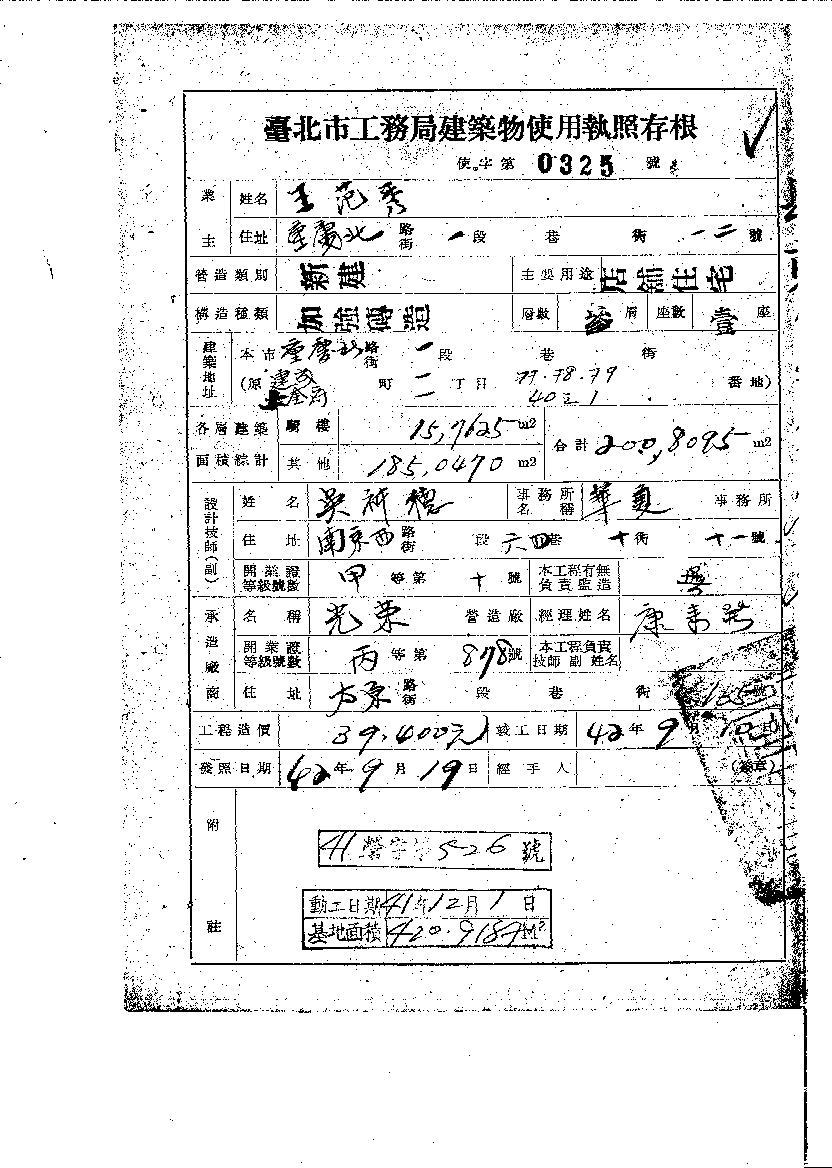 臺北市工務局建築物使用執照存根
使字第 0325 號
業主 姓名 王范秀
住址 重慶北路街 一段 巷 街 一二號
營造類別 新建 主要用途 店舖住宅
構造種類 加強磚造 層數 層 座數 壹座
建築地址 本市重慶北路街 一段 巷 街
(原 建成 町 二丁目 77.78.79 番地)
40之1
各層建築面積綜計 騎樓 15,7625 m2 合計 200,8095 m2
其他 185,0470 m2
設計技師(副) 姓名 吳神穩 事務所名稱 華夏 事務所
住址 南京西路街 段 六四巷 十街 十一號
開業證等級號數 甲等第 十號 本工程有無負責監造
承造廠商 名稱 光榮 營造廠 經理姓名 康
開業證等級號數 丙等第 878號 本工程負責技師副姓名
住址 路街 段 巷 街 135
工程造價 39,400元 竣工日期 42年9月
發照日期 42年9月19日 經手人 (簽章)
附註
41營字第526號
動工日期 41年12月1日
基地面積 420.9187M²